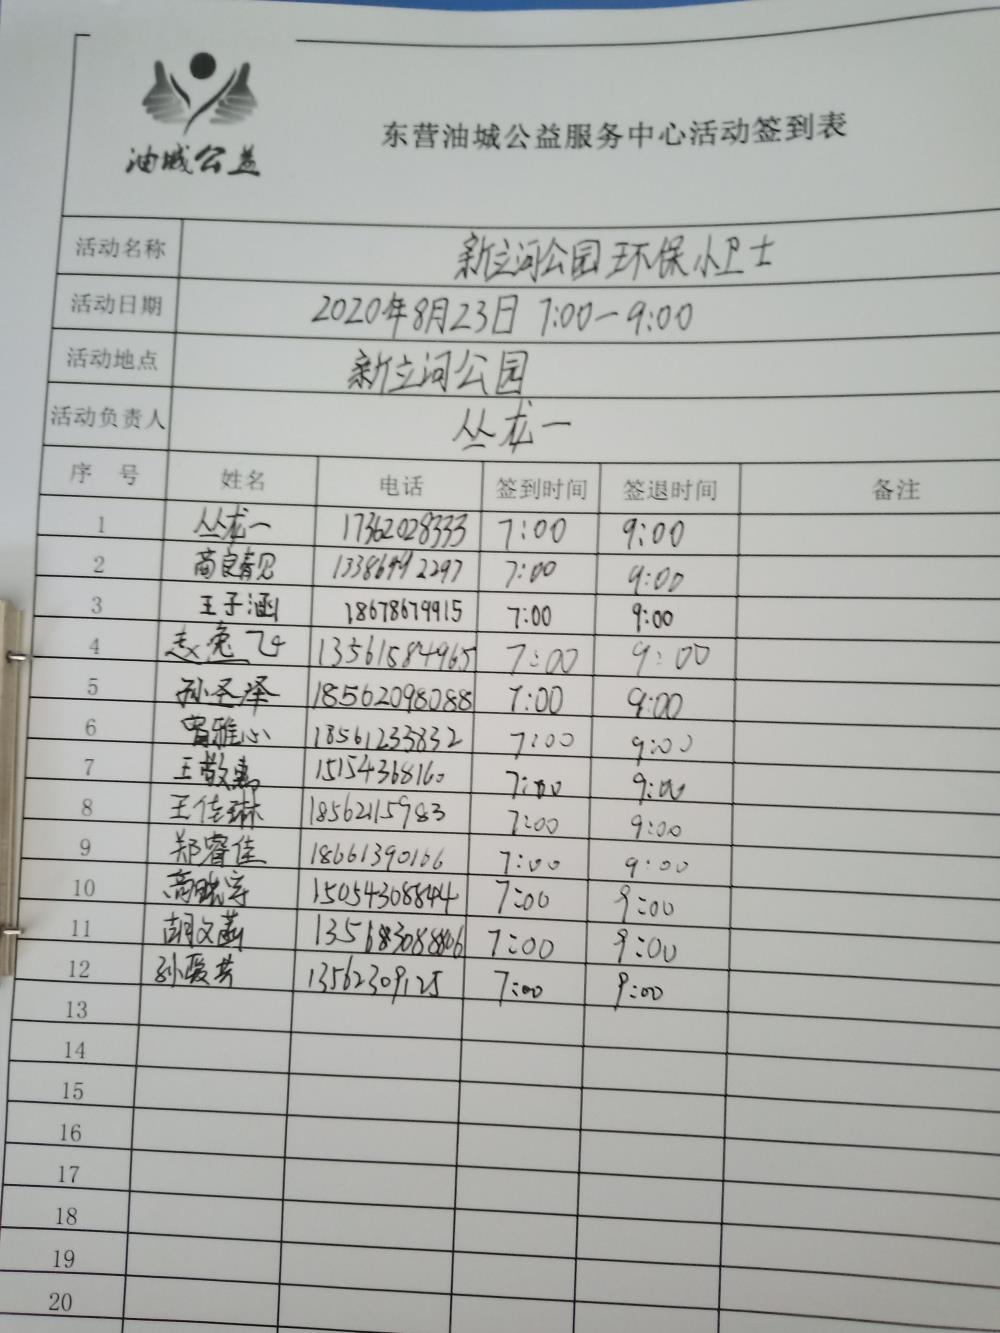 油城公益
东营油城公益服务中心活动签到表
活动名称 新立河公园环保小卫士
活动日期 2020年8月23日 7:00-9:00
活动地点 新立河公园
活动负责人 丛龙一
序 号 姓名 电话 签到时间 签退时间 备注
1 丛龙一 17362028333 7:00 9:00
2 7:00 9:00
3 王子涵 18678679915 7:00 9:00
4 13561584965 7:00 9:00
5 孙圣泽 18562098088 7:00 9:00
6 曹雅心 18561233832 7:00 9:00
7 15154368160 7:00 9:00
8 王佳琳 18562115983 7:00 9:00
9 郑睿佳 18661390166 7:00 9:00
10 15054308844 7:00 9:00
11 胡文菡 7:00 9:00
12 13562309125 7:00 9:00
13
14
15
16
17
18
19
20